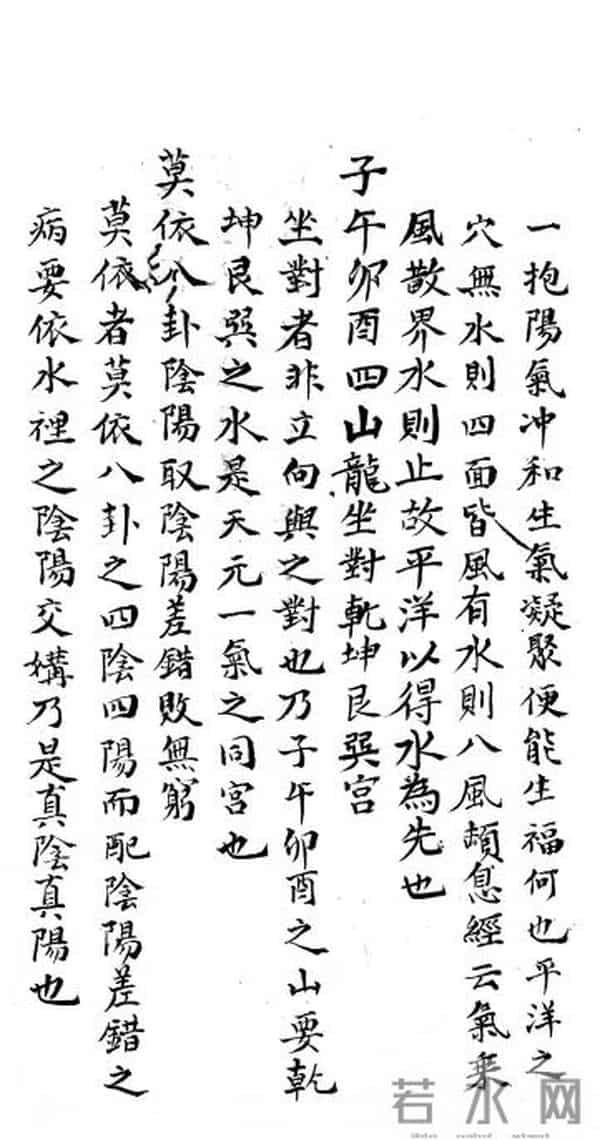 一抱陽氣冲和生氣凝聚便能生福何也平洋之
穴無水則四面皆風有水則八風頓息經云氣乗
風散界水則止故平洋以得水為先也
子午卯酉四山龍坐對乾坤艮巽宮
坐對者非立向與之對也乃子午卯酉之山要乾
坤艮巽之水是天元一氣之同宮也
莫依八卦陰陽取陰陽差錯敗無窮
莫依者莫依八卦之四陰四陽而配陰陽差錯之
病要依水裡之陰陽交媾乃是真陰真陽也
若水网